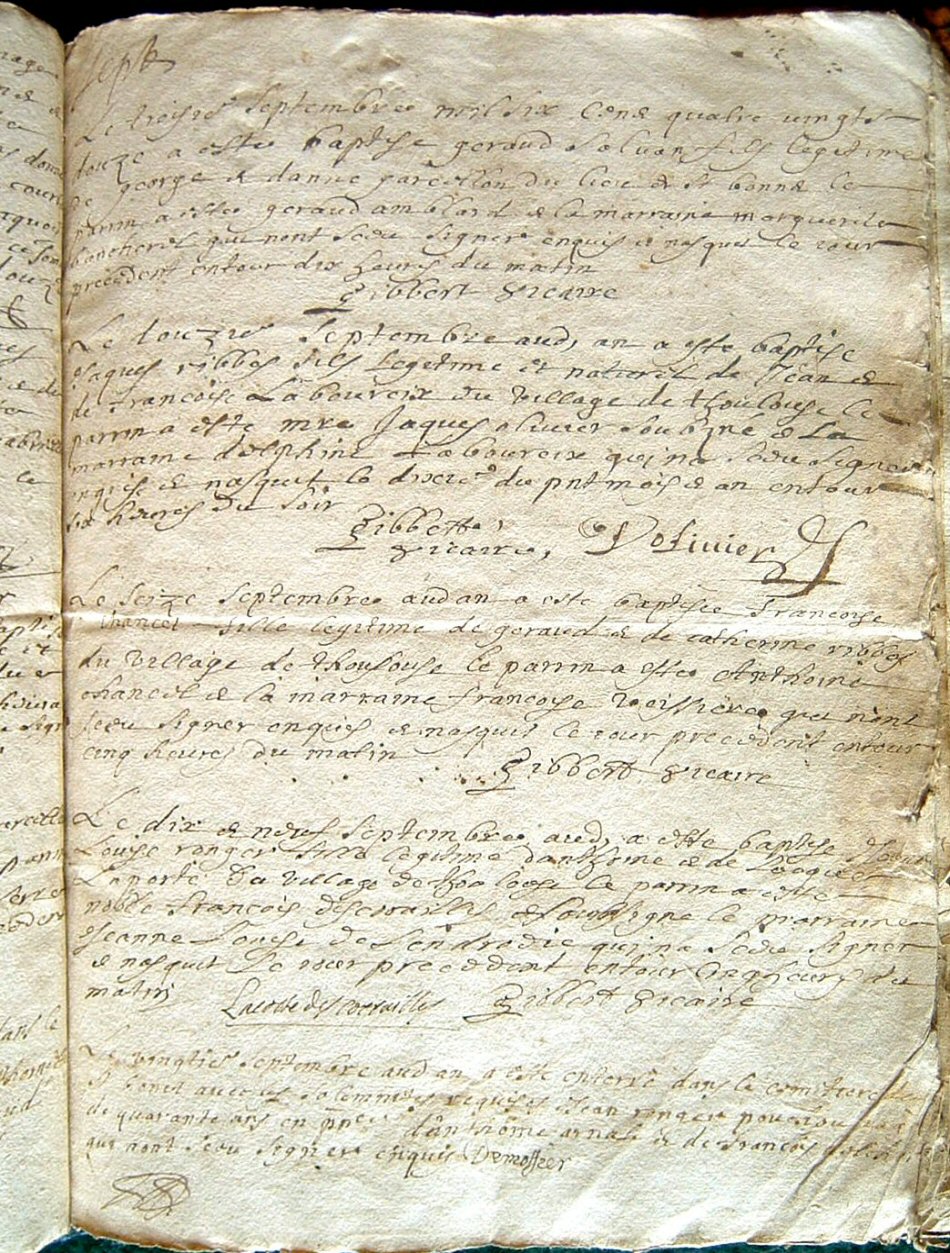 sept
Le troisie septembre mil six cens quatre vingts
douze a este baptise geraud fils legitime
de george et danne du lieu de st bonnet le
parrin a este geraud amblard et la marraine marguerite
qui nont sceu signer enquis et nasquit le jour
precedent entour dix heures du matin
Gibbert vicaire
Le douzie septembre aud, an a este baptise
Jaques ribbes fils legitime et naturel de Jean et
de francoise Laboureix du village de thoulouse le
parrin a este mre Jaques olivier et La
marraine delphine Laboureix qui na sceu signer
enquise et nasquit le dixie du pnt mois et an entour
six heures du soir
Gibbert
vicaire, Dolivier
Le seize septembre aud an a este baptisee francoise
chancel fille legitime de geraud et de catherine ribbes
du village de thoulouse le parrin a este Anthoine
chancel et la marraine francoise veissiere qui nont
sceu signer enquis et nasquit le jour precedent entour
cinq heures du matin
Gibbert vicaire
Le dix et neuf septembre aud, a este baptise
Louise ranger fille legitime danthoine et de
Laporte du village de thoolose le parrin a este
noble francois descorailles soubsigne la marraine
Jeanne Louise de qui na sceu signer
et nasquit Le jour precedent entour cinq heures du
matin
Lacoste descorailles Gibbert vicaire
Le vingtie septembre aud an a este enterre dans le cemitiere de
st bonet avec les solemnites requises Jean ranger
de quarante ans en pnce danthoine arnal et de francois
qui nont sceu signer enquis